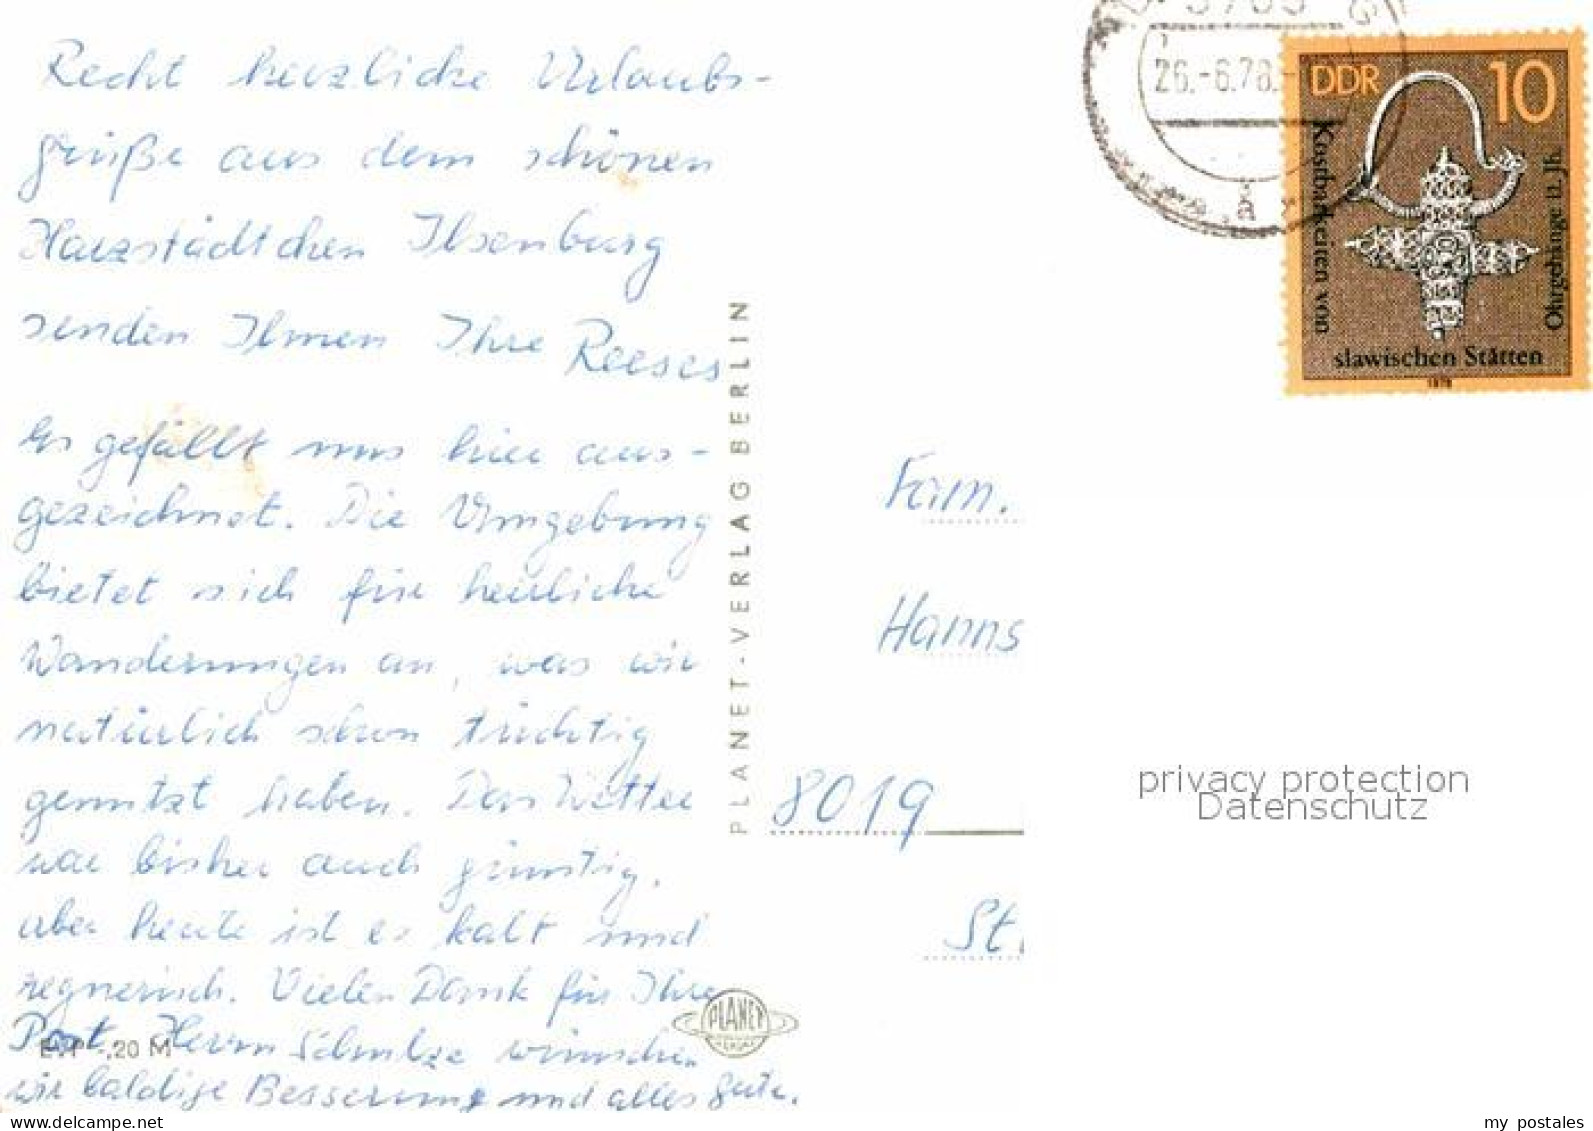 Recht herzliche Urlaubs-
grüße aus dem schönen
Harzstädtchen Ilsenburg
senden Ihnen Ihre Reeses
Es gefällt uns hier aus-
gezeichnet. Die Umgebung
bietet sich für herrliche
Wanderungen an, was wir
natürlich schon tüchtig
genutzt haben. Das Wetter
war bisher auch günstig,
aber heute ist es kalt und
regnerisch. Vielen Dank für Ihre
Post. Herrn Schulze wünschen
wir baldige Besserung und alles Gute.
EVP -,20 M
PLANET-VERLAG BERLIN
PLANET
3705
26.-6.78.-
DDR 10
Kostbarkeiten von
slawischen Stätten
Ohrgehänge 12. Jh.
1978
Fam.
Hanns
8019
privacy protection
Datenschutz
my postales